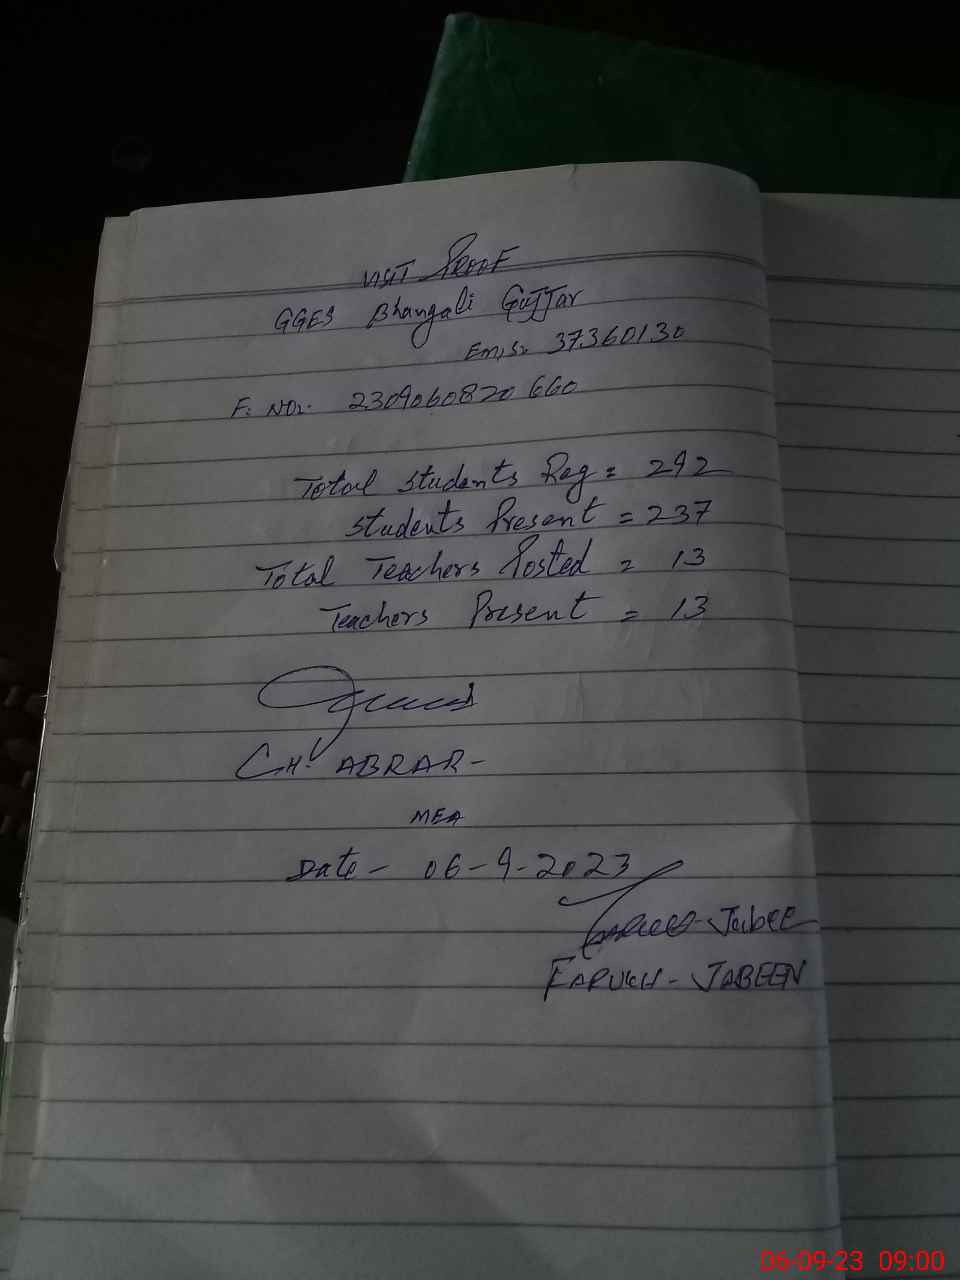 VISIT PROOF
GGES Bhangali Gujjar
Emis. 37360130
F. NO:. 2309060820660
Total Students Reg = 292
Students Present = 237
Total Teachers Posted = 13
Teachers Present = 13
CH. ABRAR-
MEA
Date - 06-9-2023
Jabee
FARUKH - JABEEN
06-09-23 09:00